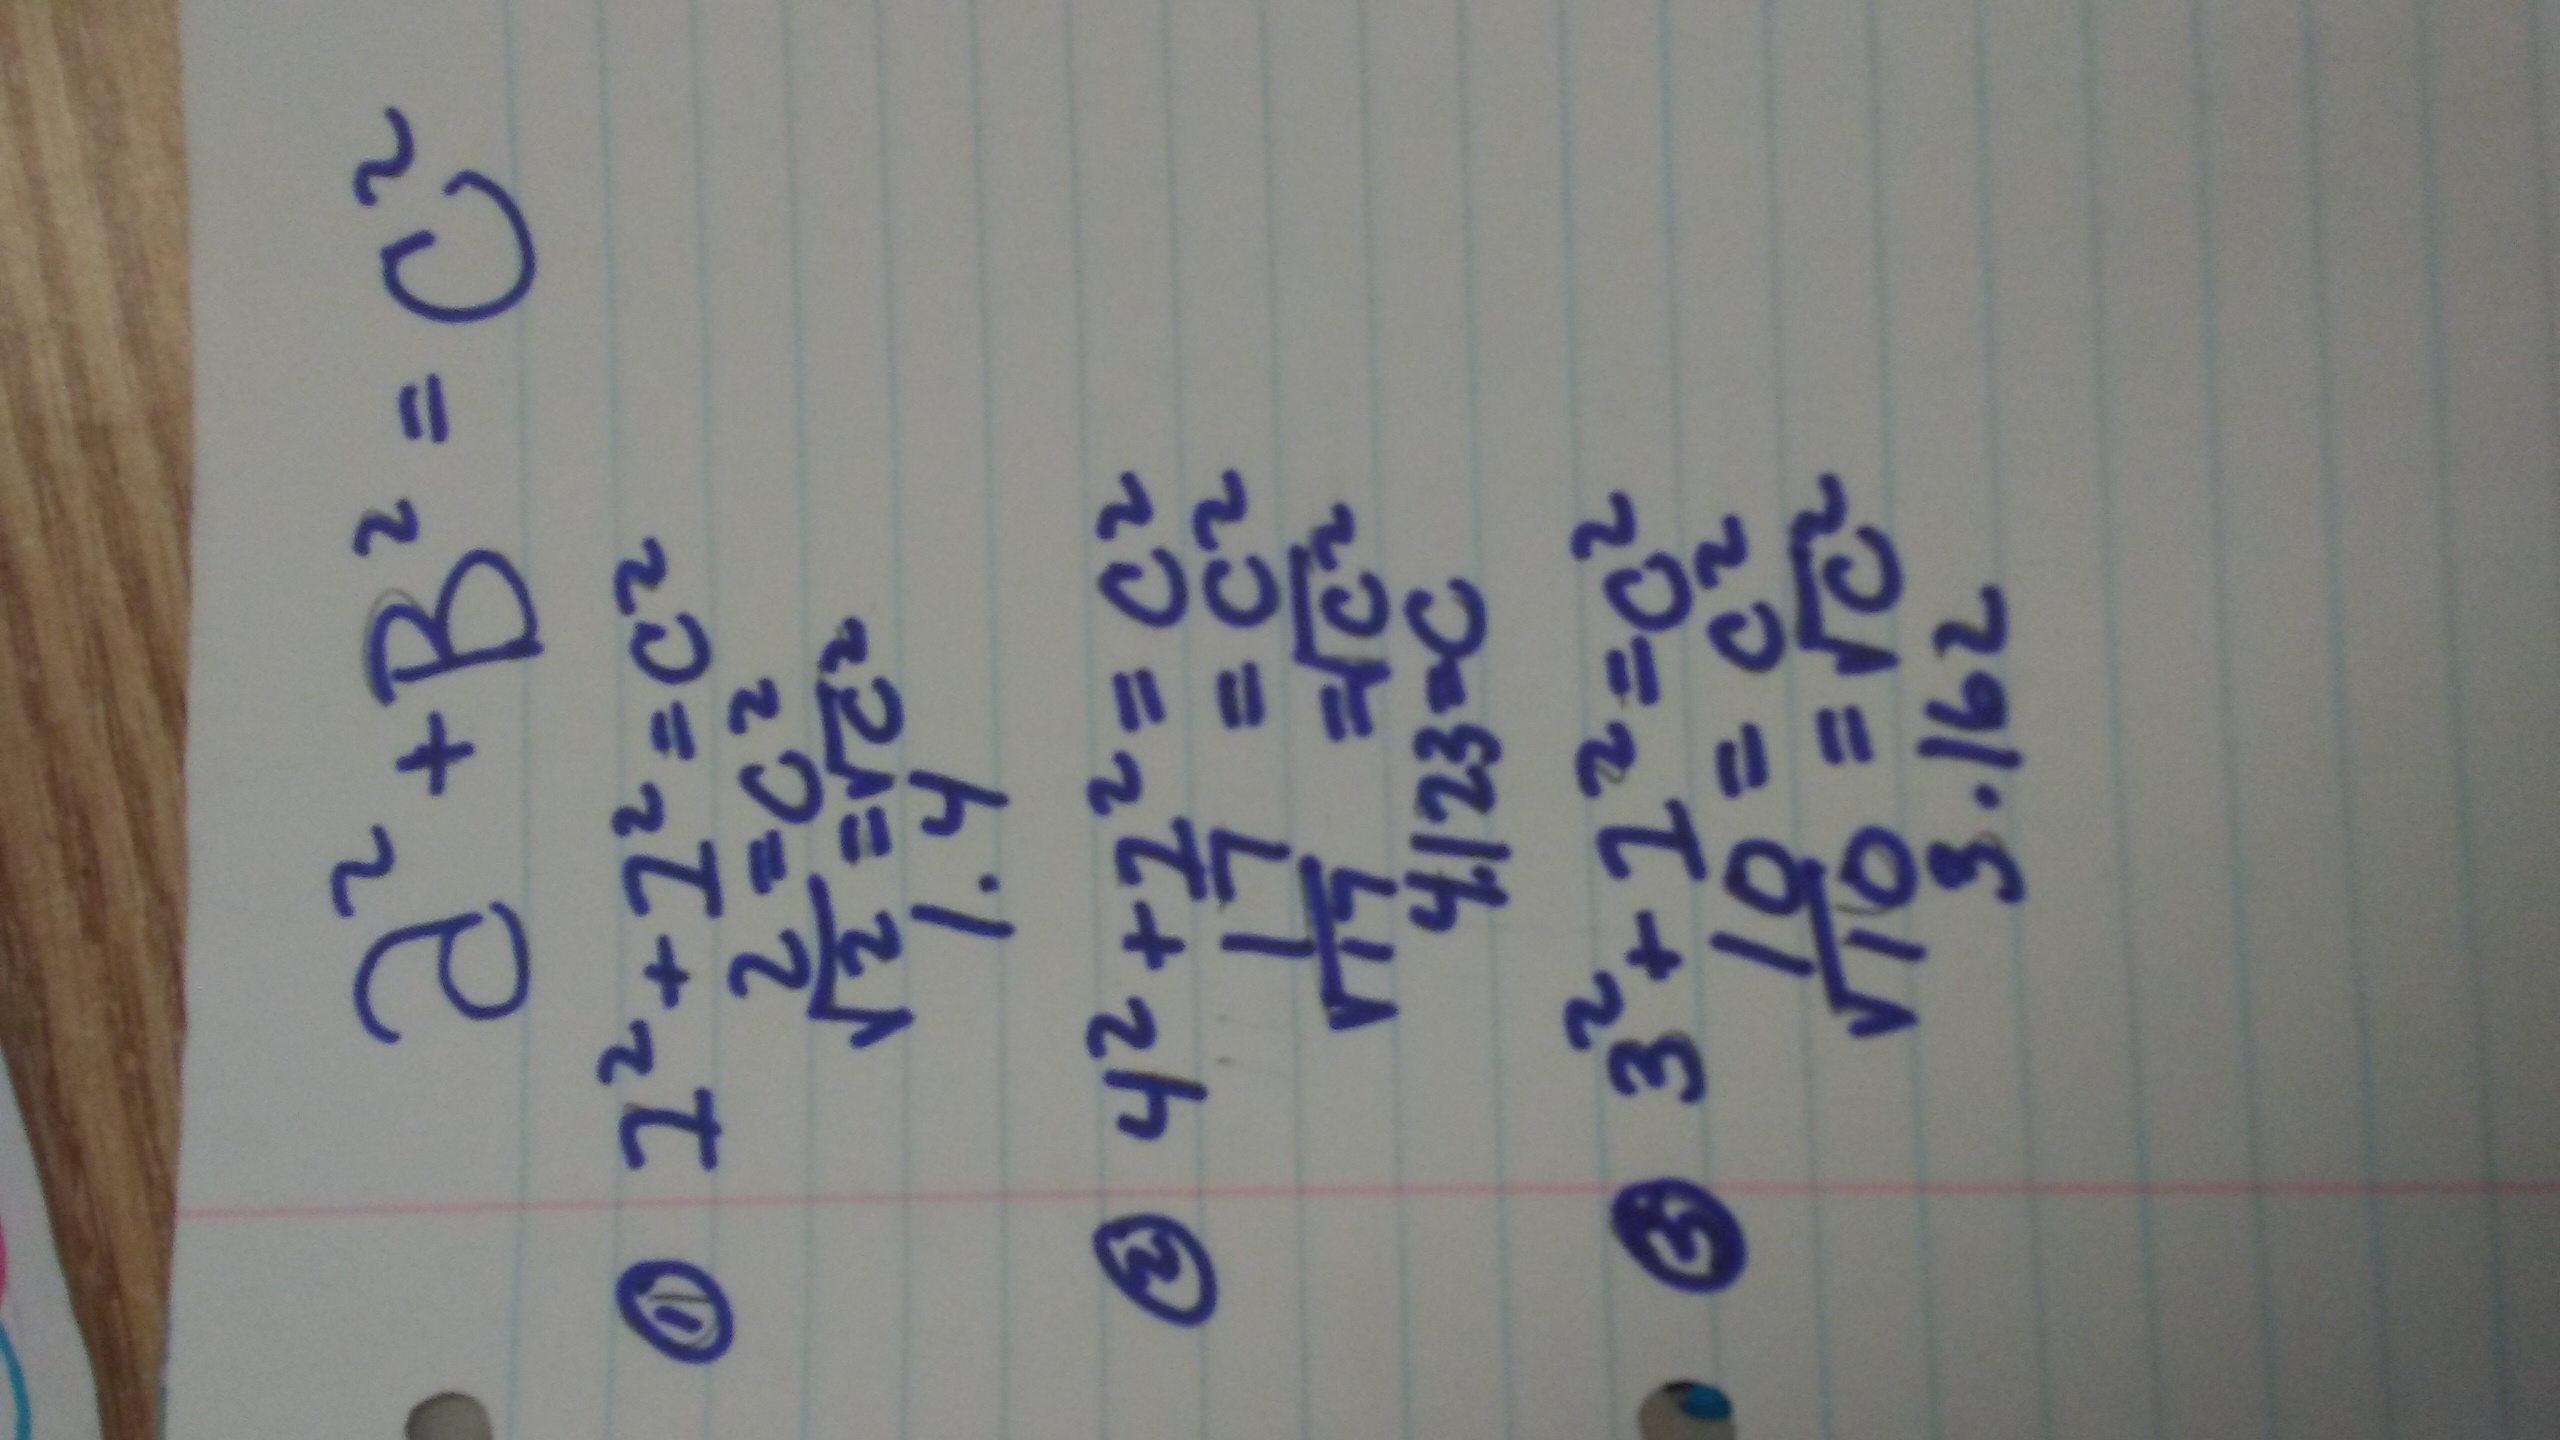 a² + B² = C²
① 1² + 1² = C²
2 = C²
√2 = √C²
1.4
② 4² + 1² = C²
17 = C²
√17 = √C²
4.123 = C
③ 3² + 1² = C²
10 = C²
√10 = √C²
3.162